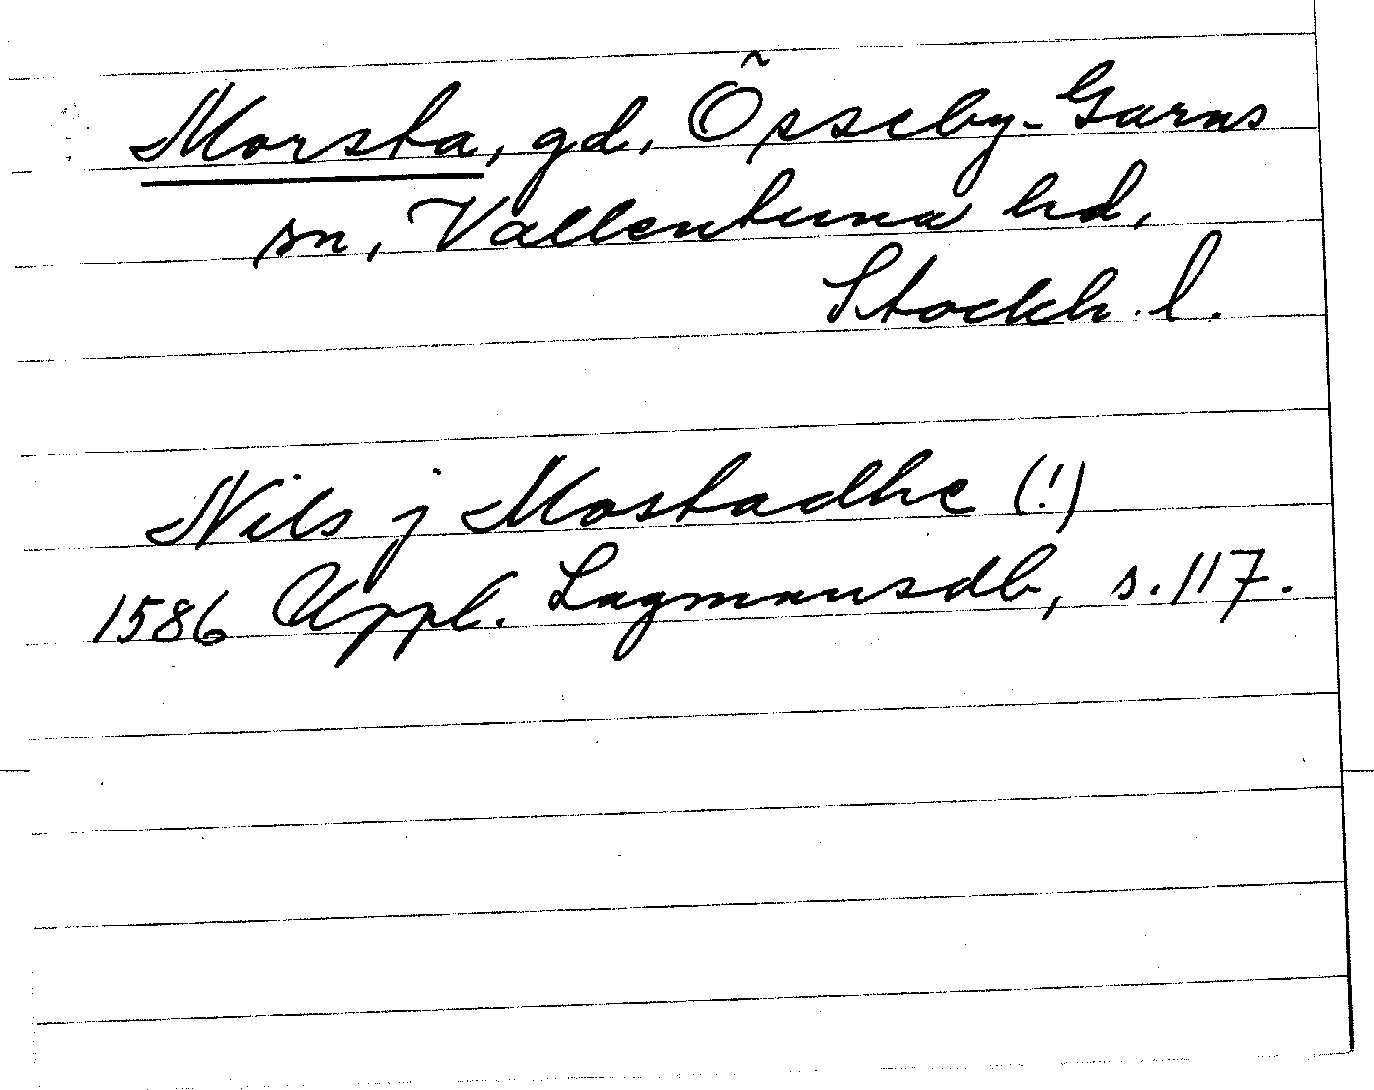 Morsta, gd, Össeby-Garns
sn, Vallentuna hd,
Stockh. l.
Nils j Mostadhe (!)
1586 Uppl. Lagmansdb, s. 117.